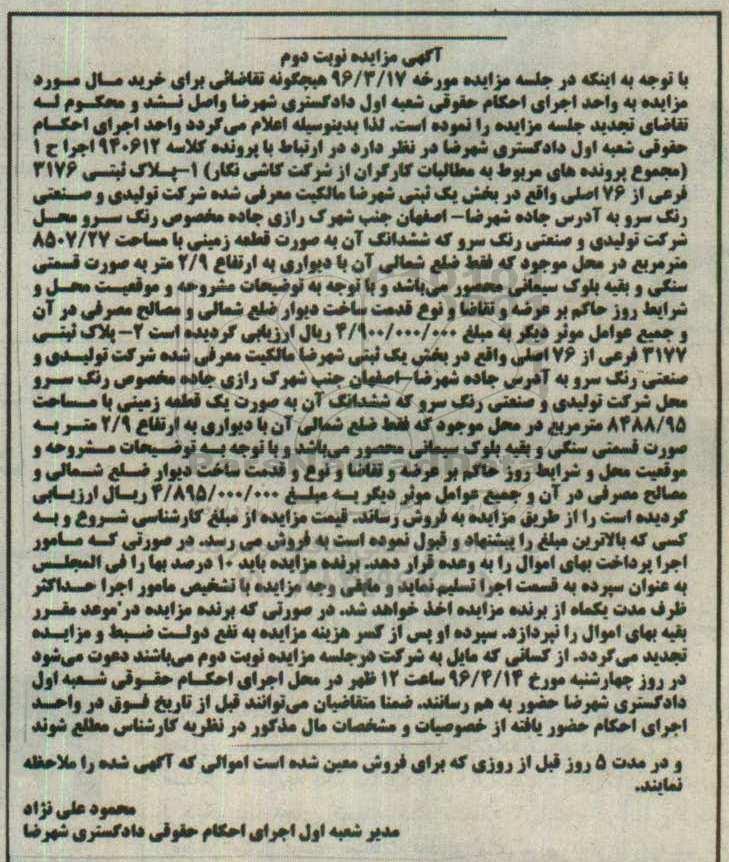 آگهی مزایده نوبت دوم
با توجه به اینکه در جلسه مزایده مورخه ۹۶/۳/۱۷ هیچگونه تقاضائی برای خرید مال مورد
مزایده به واحد اجرای احکام حقوقی شعبه اول دادگستری شهرضا واصل نشد و محکوم له
تقاضای تجدید جلسه مزایده را نموده است. لذا بدینوسیله اعلام می‌گردد واحد اجرای احکام
حقوقی شعبه اول دادگستری شهرضا در نظر دارد در ارتباط با پرونده کلاسه ۹۴۰۶۱۲ اجرا ح ۱
(مجموع پرونده های مربوط به مطالبات کارگران از شرکت کاشی نگار) ۱-پلاک ثبتی ۳۱۷۶
فرعی از ۷۶ اصلی واقع در بخش یک ثبتی شهرضا مالکیت معرفی شده شرکت تولیدی و صنعتی
رنگ سرو به آدرس جاده شهرضا- اصفهان جنب شهرک رازی جاده مخصوص رنگ سرو محل
شرکت تولیدی و صنعتی رنگ سرو که ششدانگ آن به صورت قطعه زمینی با مساحت ۸۵۰۷/۲۷
مترمربع در محل موجود که فقط ضلع شمالی آن با دیواری به ارتفاع ۲/۹ متر به صورت قسمتی
سنگی و بقیه بلوک سیمانی محصور می‌باشد و با توجه به توضیحات مشروحه و موقعیت محل و
شرایط روز حاکم بر عرضه و تقاضا و نوع قدمت ساخت دیوار ضلع شمالی و مصالح مصرفی در آن
و جمیع عوامل موثر دیگر به مبلغ ۴/۹۰۰/۰۰۰/۰۰۰ ریال ارزیابی گردیده است ۲- پلاک ثبتی
۳۱۷۷ فرعی از ۷۶ اصلی واقع در بخش یک ثبتی شهرضا مالکیت معرفی شده شرکت تولیدی و
صنعتی رنگ سرو به آدرس جاده شهرضا-اصفهان جنب شهرک رازی جاده مخصوص رنگ سرو
محل شرکت تولیدی و صنعتی رنگ سرو که ششدانگ آن به صورت یک قطعه زمینی با مساحت
۸۴۸۸/۹۵ مترمربع در محل موجود که فقط ضلع شمالی آن با دیواری به ارتفاع ۲/۹ متر به
صورت قسمتی سنگی و بقیه بلوک سیمانی محصور می‌باشد و با توجه به توضیحات مشروحه و
موقعیت محل و شرایط روز حاکم بر عرضه و تقاضا و نوع و قدمت ساخت دیوار ضلع شمالی و
مصالح مصرفی در آن و جمیع عوامل موثر دیگر به مبلغ ۴/۸۹۵/۰۰۰/۰۰۰ ریال ارزیابی
گردیده است را از طریق مزایده به فروش رساند. قیمت مزایده از مبلغ کارشناسی شروع و به
کسی که بالاترین مبلغ را پیشنهاد و قبول نموده است به فروش می رسد. در صورتی که مامور
اجرا پرداخت بهای اموال را به وعده قرار دهد. برنده مزایده باید ۱۰ درصد بها را فی المجلس
به عنوان سپرده به قسمت اجرا تسلیم نماید و مابقی وجه مزایده با تشخیص مامور اجرا حداکثر
ظرف مدت یکماه از برنده مزایده اخذ خواهد شد. در صورتی که برنده مزایده در موعد مقرر
بقیه بهای اموال را نپردازد. سپرده او پس از کسر هزینه مزایده به نفع دولت ضبط و مزایده
تجدید می‌گردد. از کسانی که مایل به شرکت درجلسه مزایده نوبت دوم می‌باشند دعوت می‌شود
در روز چهارشنبه مورخ ۹۶/۴/۱۴ ساعت ۱۲ ظهر در محل اجرای احکام حقوقی شعبه اول
دادگستری شهرضا حضور به هم رسانند. ضمنا متقاضیان می‌توانند قبل از تاریخ فوق در واحد
اجرای احکام حضور یافته از خصوصیات و مشخصات مال مذکور در نظریه کارشناس مطلع شوند
و در مدت ۵ روز قبل از روزی که برای فروش معین شده است اموالی که آگهی شده را ملاحظه
نمایند.
محمود علی نژاد
مدیر شعبه اول اجرای احکام حقوقی دادگستری شهرضا